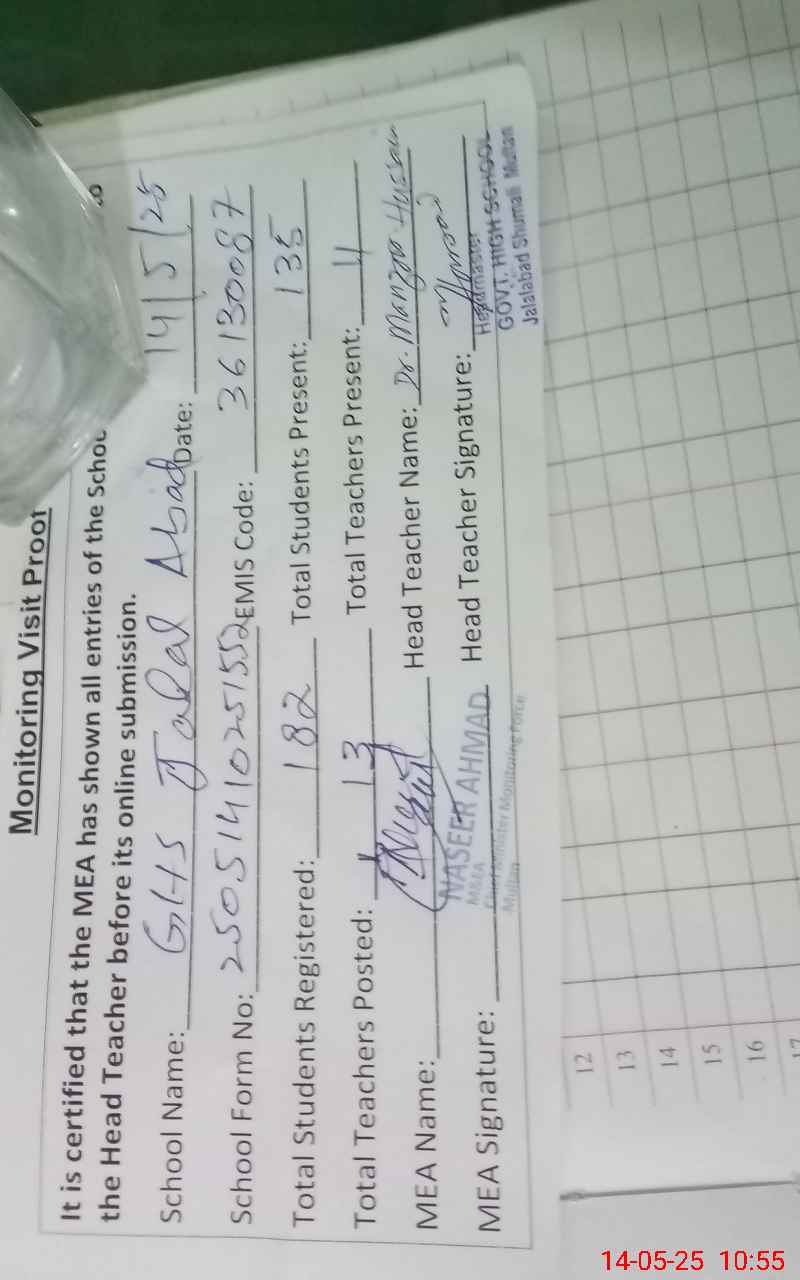 Monitoring Visit Proof
It is certified that the MEA has shown all entries of the School to
the Head Teacher before its online submission.
School Name: GHS Jalal Abad Date: 14/5/25
School Form No: 25051410251552 EMIS Code: 36130087
Total Students Registered: 182 Total Students Present: 135
Total Teachers Posted: 13 Total Teachers Present: 11
MEA Name: Head Teacher Name: Dr. Manzoor Hussain
MEA Signature: Head Teacher Signature:
NASEER AHMAD
M&EA
Chief Minister Monitoring Force
Multan
Headmaster
GOVT. HIGH SCHOOL
Jalalabad Shumali Multan
12
13
14
15
16
17
14-05-25 10:55